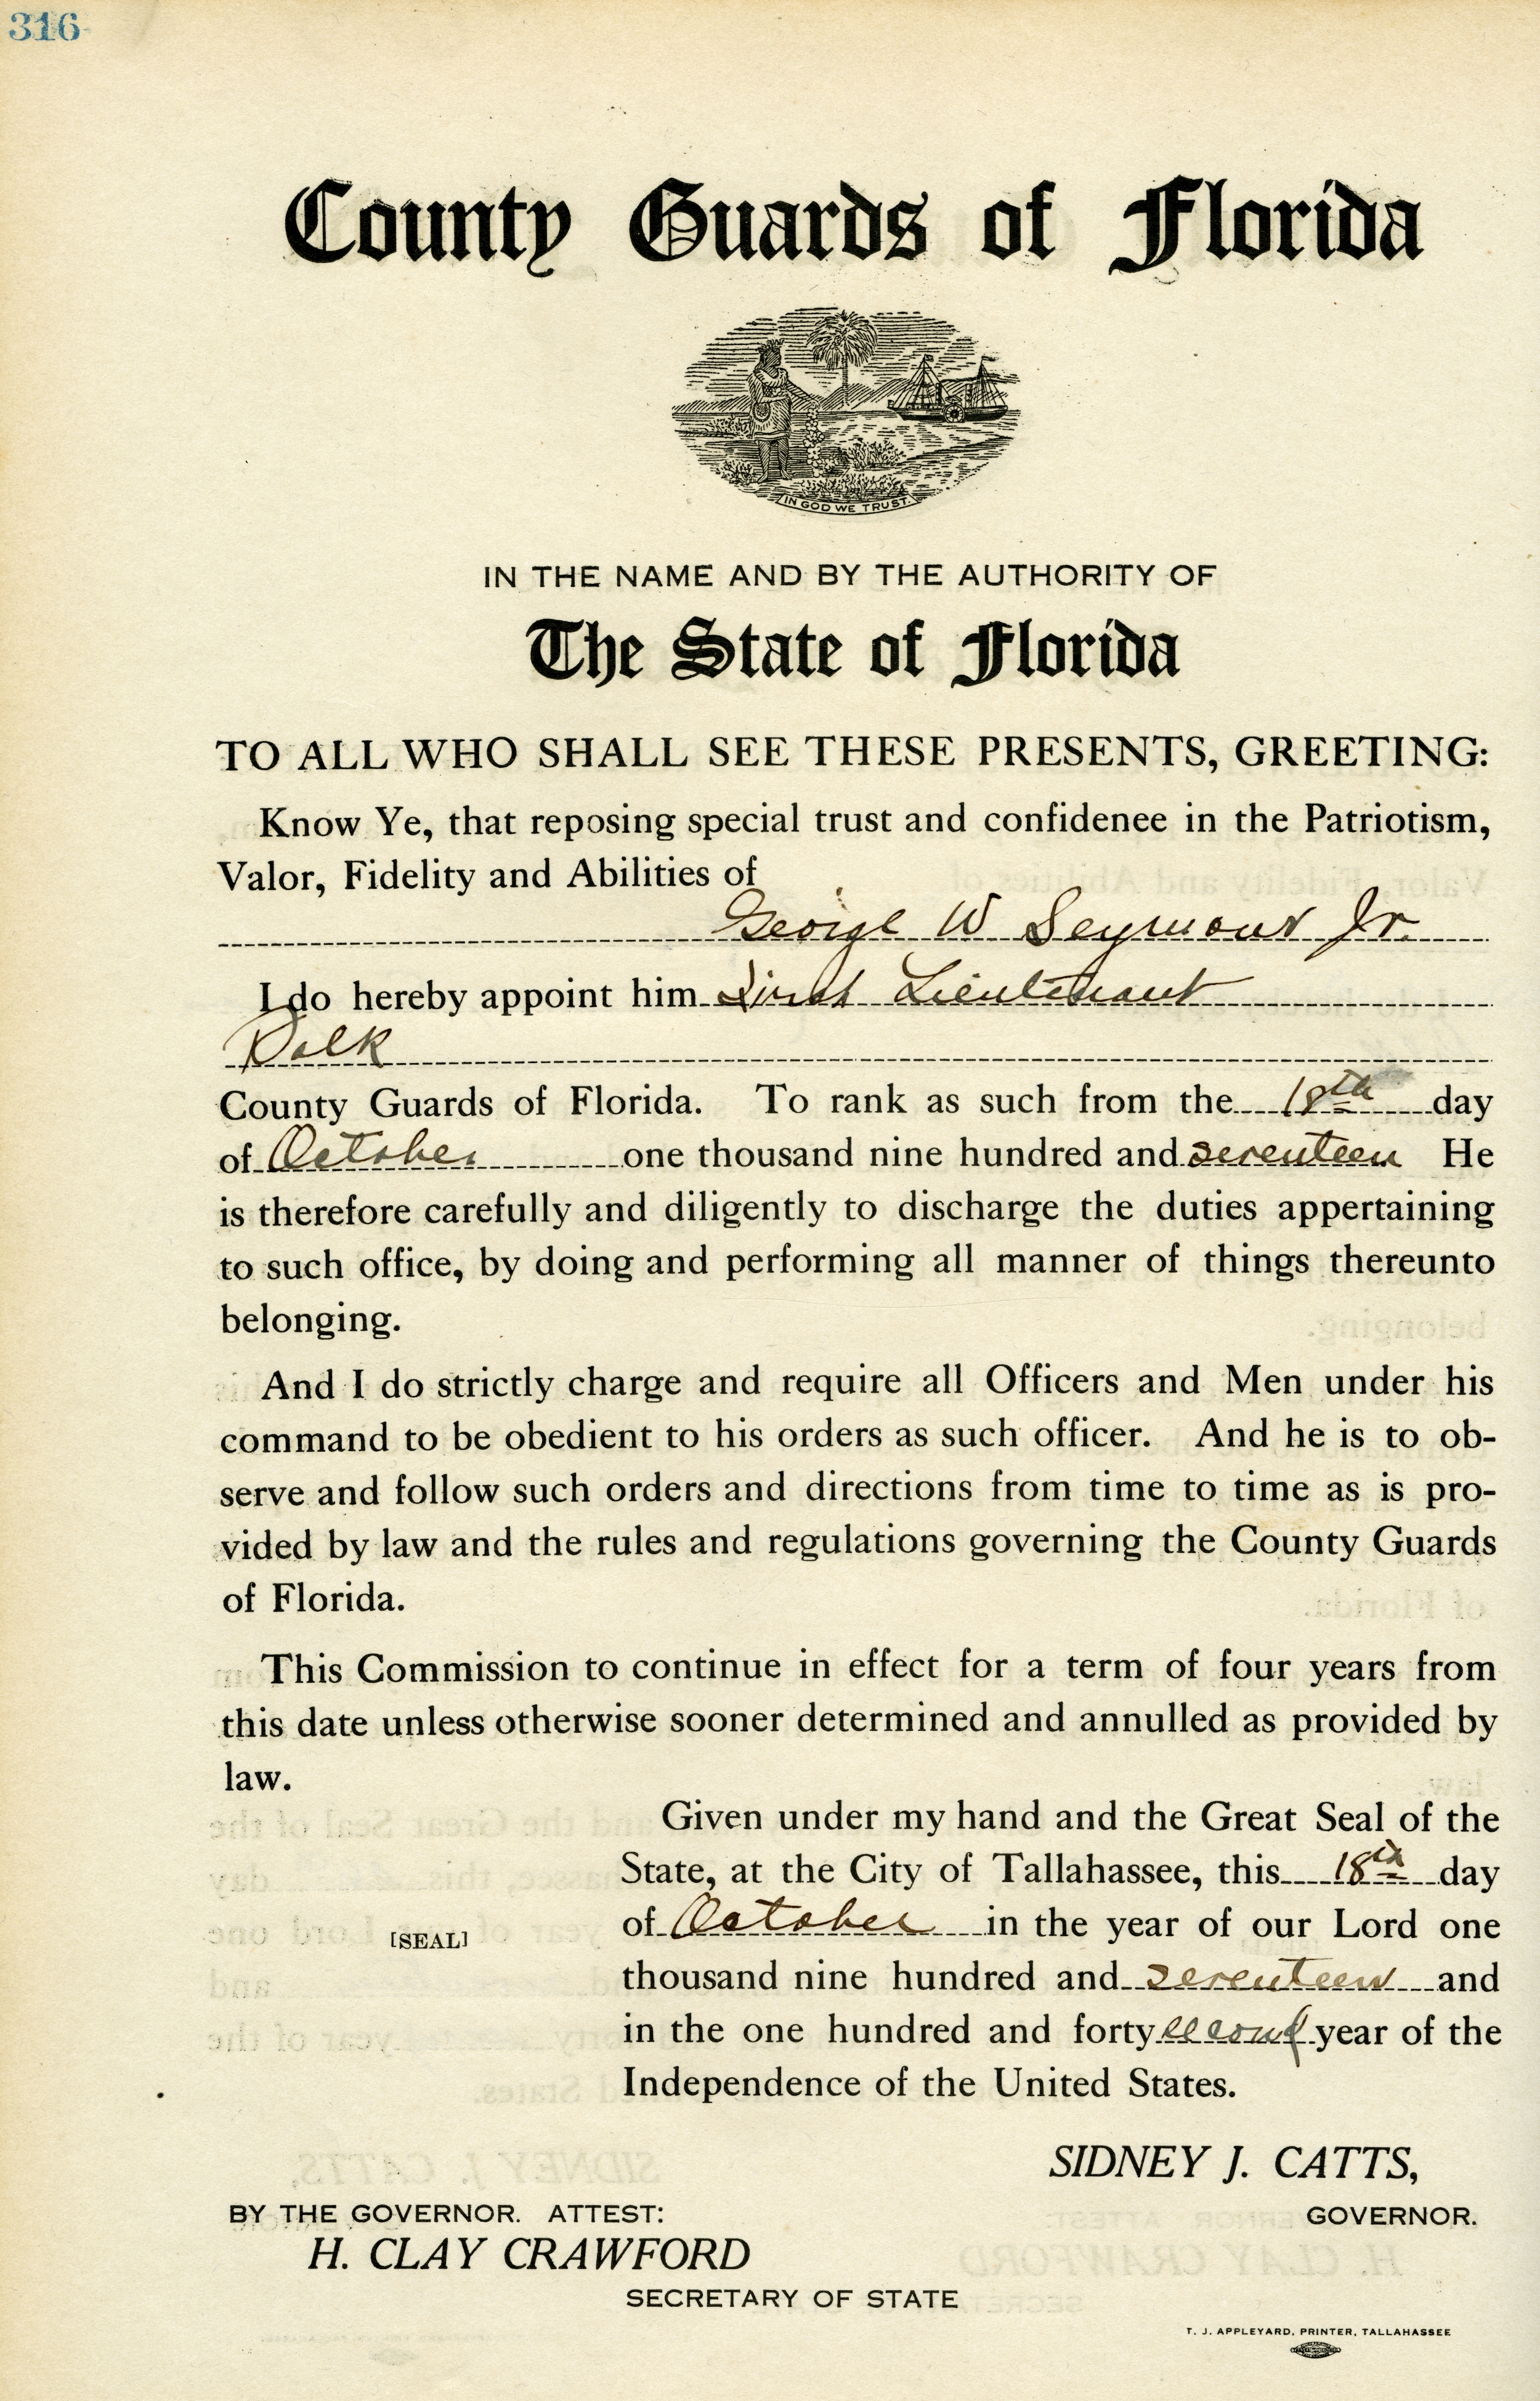 316
County Guards of Florida
IN GOD WE TRUST.
IN THE NAME AND BY THE AUTHORITY OF
The State of Florida
TO ALL WHO SHALL SEE THESE PRESENTS, GREETING:
Know Ye, that reposing special trust and confidenee in the Patriotism,
Valor, Fidelity and Abilities of
George W Seymour Jr.
I do hereby appoint him First Lieutenant
Polk
County Guards of Florida. To rank as such from the 18th day
of October one thousand nine hundred and seventeen He
is therefore carefully and diligently to discharge the duties appertaining
to such office, by doing and performing all manner of things thereunto
belonging.
And I do strictly charge and require all Officers and Men under his
command to be obedient to his orders as such officer. And he is to ob-
serve and follow such orders and directions from time to time as is pro-
vided by law and the rules and regulations governing the County Guards
of Florida.
This Commission to continue in effect for a term of four years from
this date unless otherwise sooner determined and annulled as provided by
law.
Given under my hand and the Great Seal of the
State, at the City of Tallahassee, this 18th day
of October in the year of our Lord one
[SEAL]
thousand nine hundred and seventeen and
in the one hundred and forty second year of the
Independence of the United States.
SIDNEY J. CATTS,
BY THE GOVERNOR. ATTEST:
GOVERNOR.
H. CLAY CRAWFORD
SECRETARY OF STATE
T. J. APPLEYARD, PRINTER, TALLAHASSEE